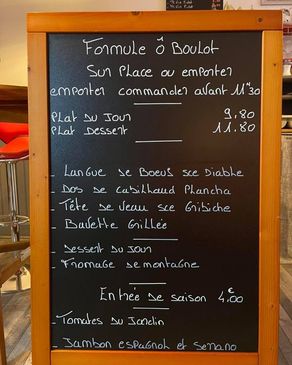 Formule ô Boulot
Sur Place ou emporter
emporter commander avant 11H30
Plat du Jour 9,80
Plat Dessert 11.80
- Langue de Boeuf sce Diable
- Dos de Cabillaud Plancha
- Tête de veau sce Gribiche
- Bavette Grillée
- Dessert du Jour
- Fromage de montagne
Entrée de saison 4,00€
- Tomates du Jardin
- Jambon espagnol et Serrano